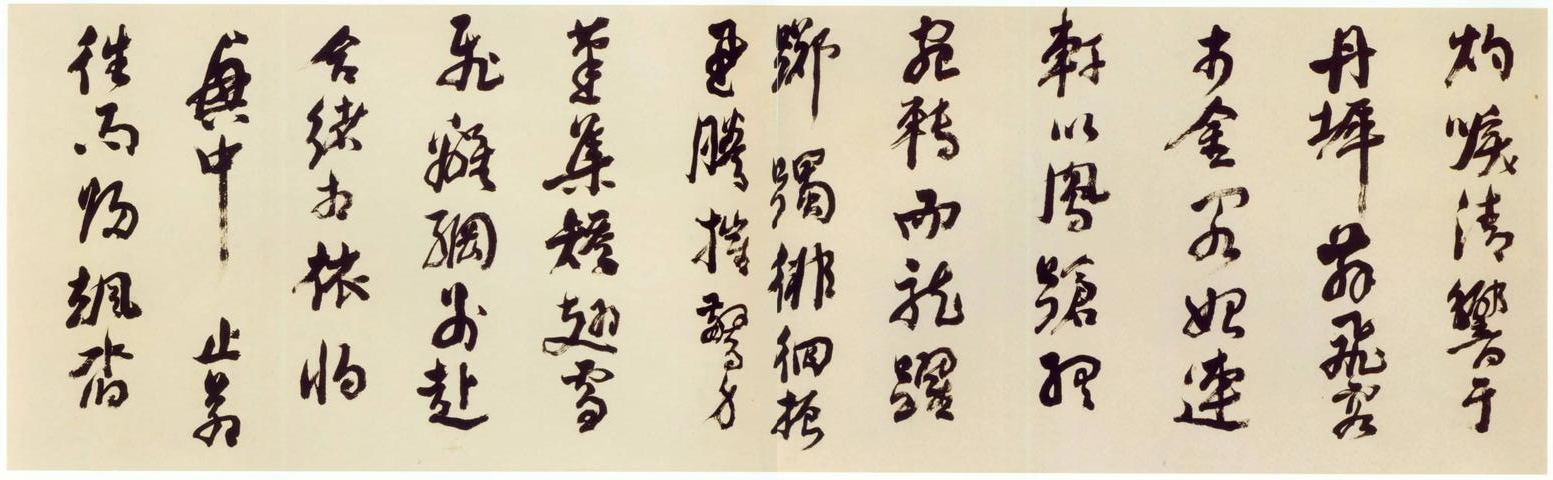 灼唳清響于
丹墀舞飛容
於金閣始連
軒以鳳蹌終
宛轉而龍躍
躑躅徘徊振
迅騰摧驚身
蓬集矯翅雪
飛離綱別赴
合緒相依將
興中止若
往而歸颯沓